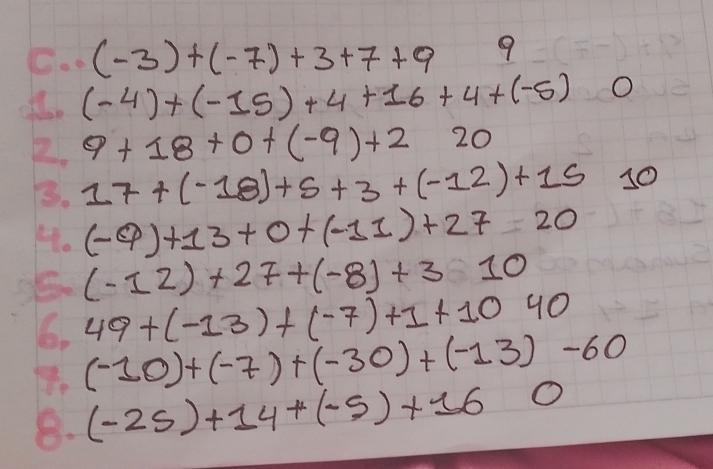 C.. (-3)+(-7)+3+7+9 9
1. (-4)+(-15)+4+16+4+(-5) 0
2. 9+18+0+(-9)+2 20
3. 17+(-18)+5+3+(-12)+15 10
4. (-9)+13+0+(-11)+27=20
5. (-12)+27+(-8)+3 10
6. 49+(-13)+(-7)+1+10 40
7. (-10)+(-7)+(-30)+(-13) -60
8. (-25)+14+(-5)+16 0